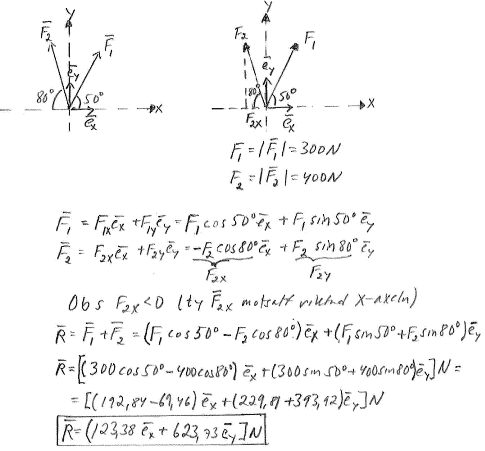 y y
F̄₂ F̄₁ F₂ F₁
ēy ēy
80° 50° 80° 50°
ēx x F₂ₓ ēx x
F₁ = |F̄₁| = 300N
F₂ = |F̄₂| = 400N
F̄₁ = F₁ₓēx + F₁yēy = F₁cos50°ēx + F₁sin50°ēy
F̄₂ = F₂ₓēx + F₂yēy = -F₂cos80°ēx + F₂sin80°ēy
F₂ₓ F₂y
Obs F₂ₓ<0 (ty F̄₂ₓ motsatt riktad x-axeln)
R̄ = F̄₁ + F̄₂ = (F₁cos50° - F₂cos80°)ēx + (F₁sin50° + F₂sin80°)ēy
R̄ = [(300cos50° - 400cos80°)ēx + (300sin50° + 400sin80°)ēy]N =
= [(192,84 - 69,46)ēx + (229,81 + 393,92)ēy]N
R̄ = (123,38ēx + 623,73ēy)N